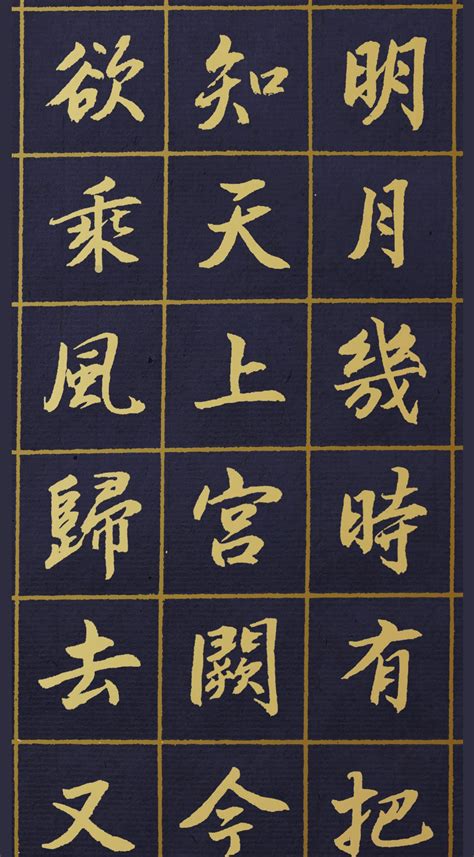 明月幾時有把
知天上宮闕今
欲乘風歸去又